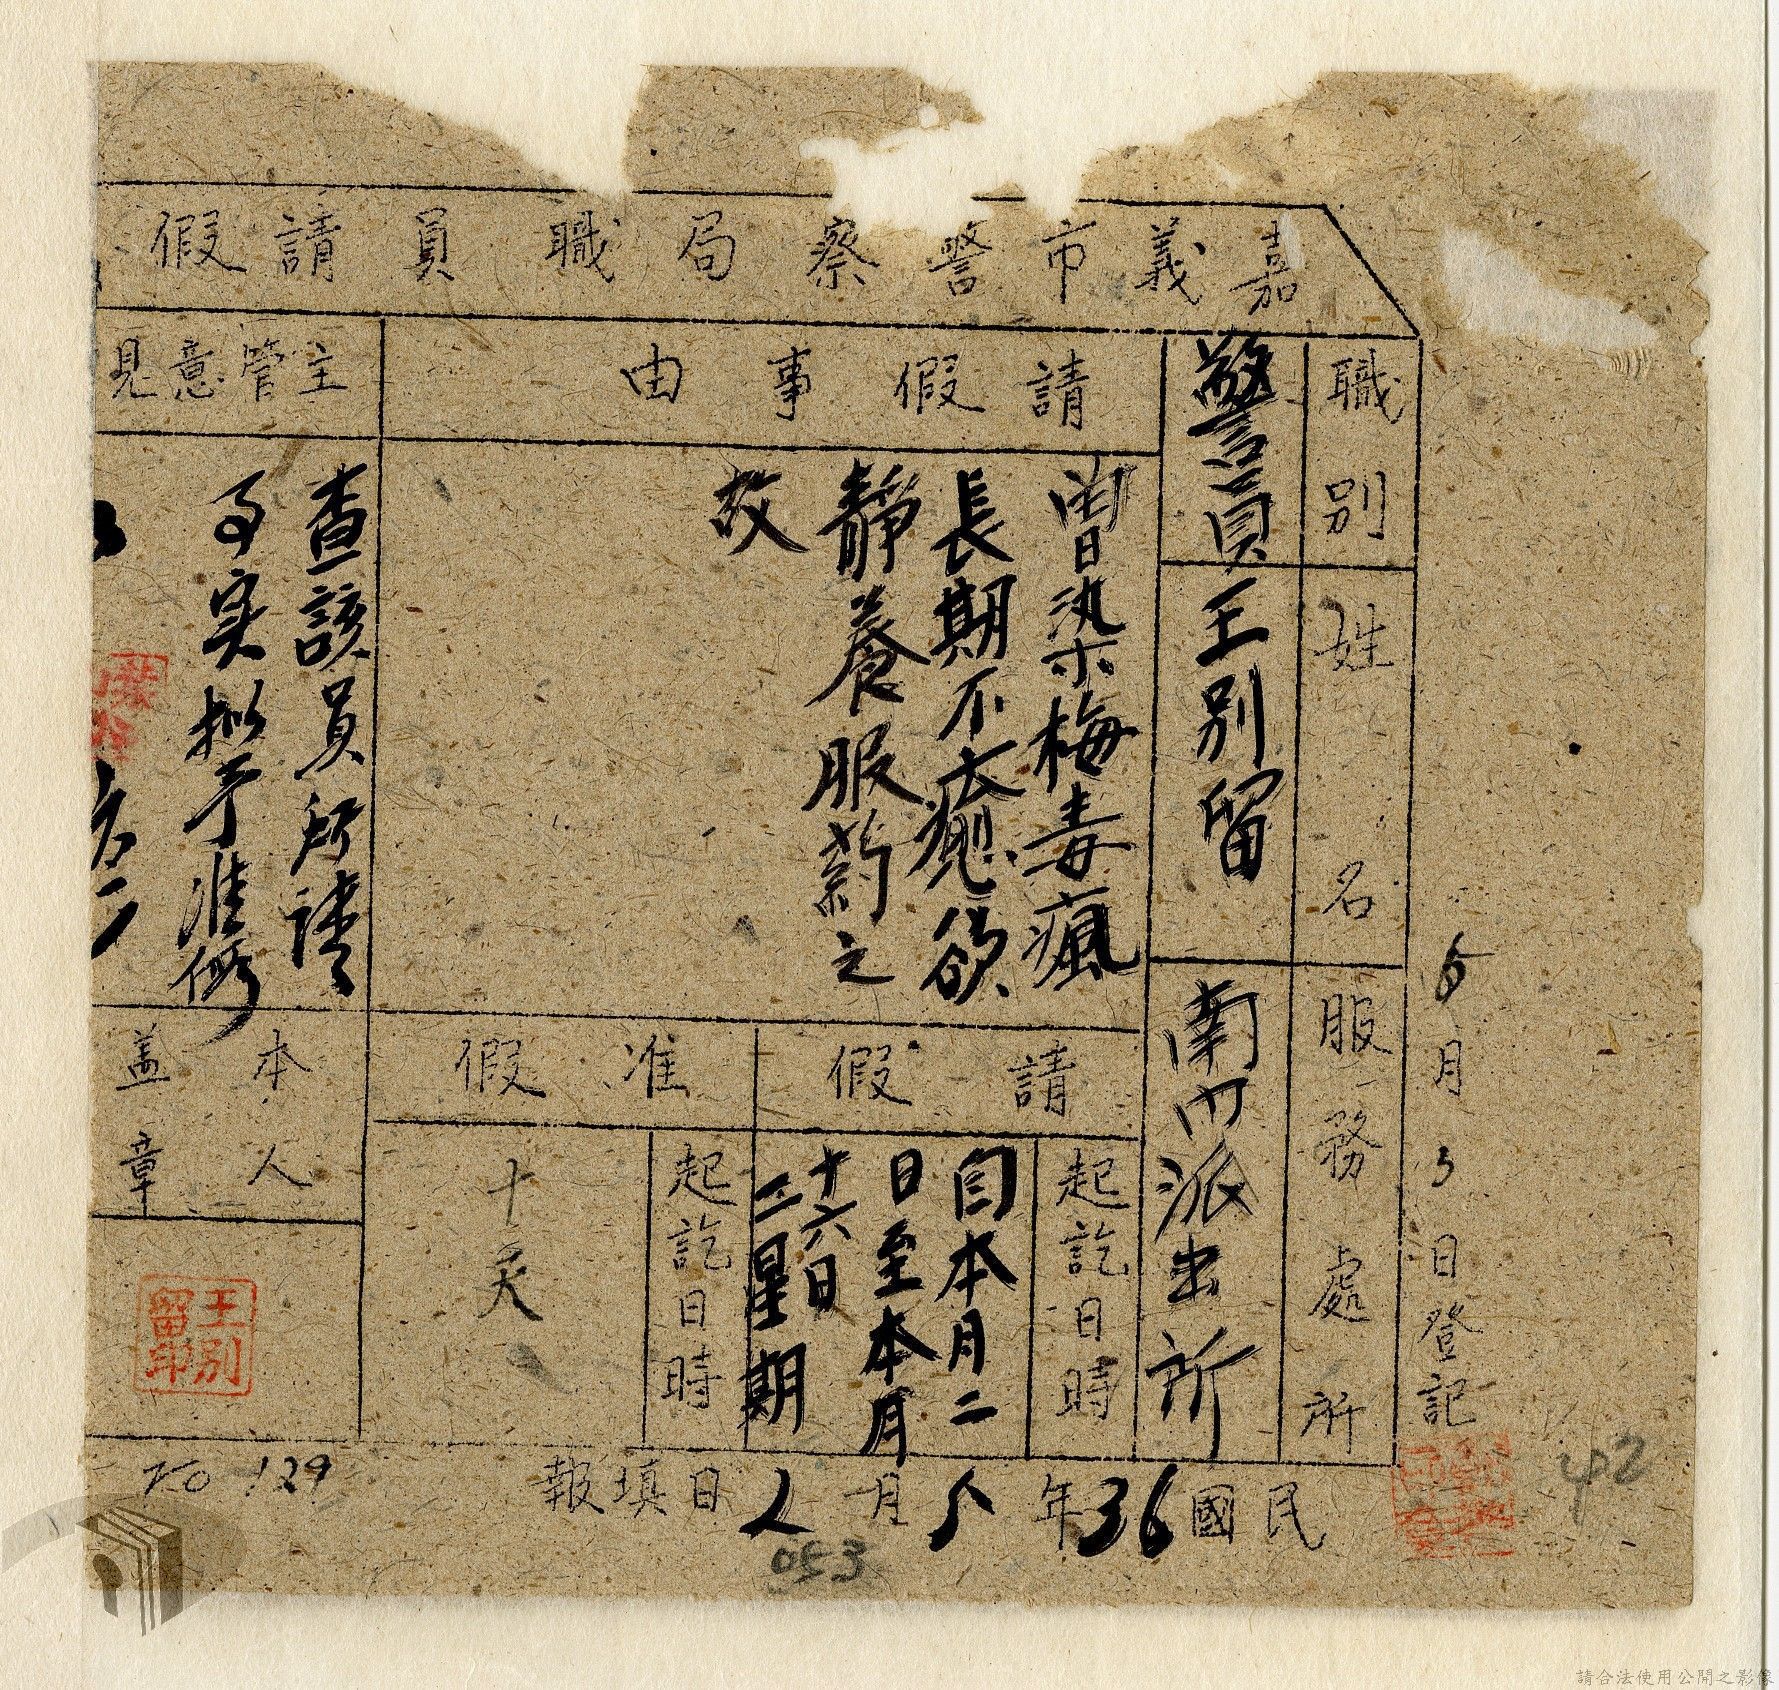 嘉義市警察局職員請假
職別
警員
姓名
王別留
服務處所
南門派出所
請假事由
曾染梅毒瘋
長期不癒欲
靜養服葯之
故
請假
起訖日時
自本月二
日至本月
十六日
二星期
准假
起訖日時
十天
主管意見
查該員所請
實擬予准假
本人
蓋章
王別
留印
月
日登記
民國36年
月
日填報
053
42
請合法使用公開之影像